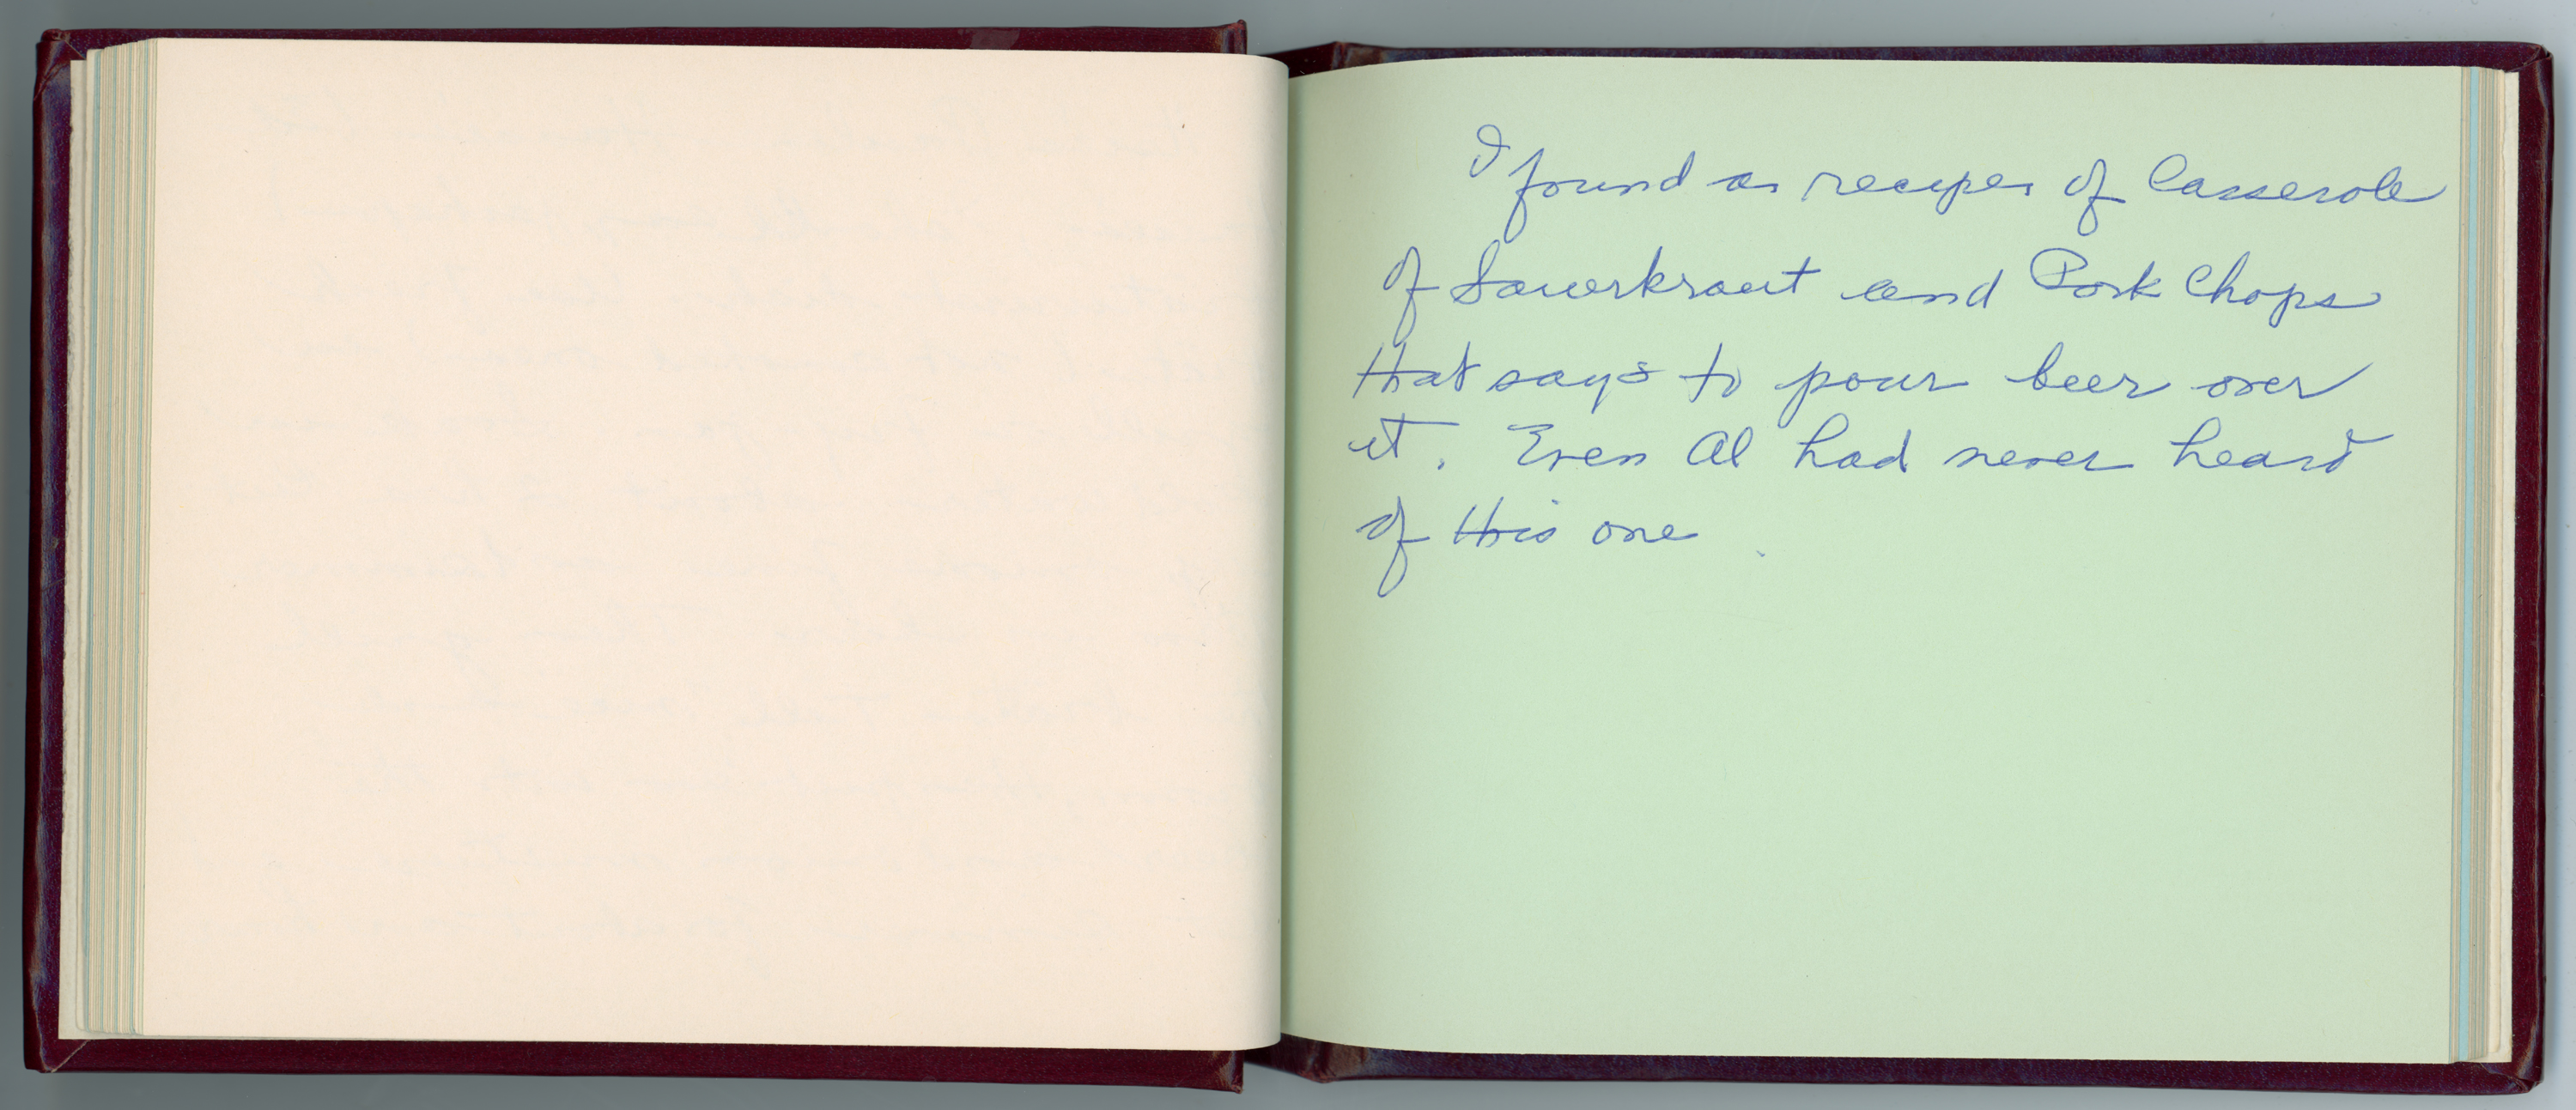 I found a recipe of Casserole
of Sauerkraut and Pork Chops
that says to pour beer over
it. Even Al had never heard
of this one.